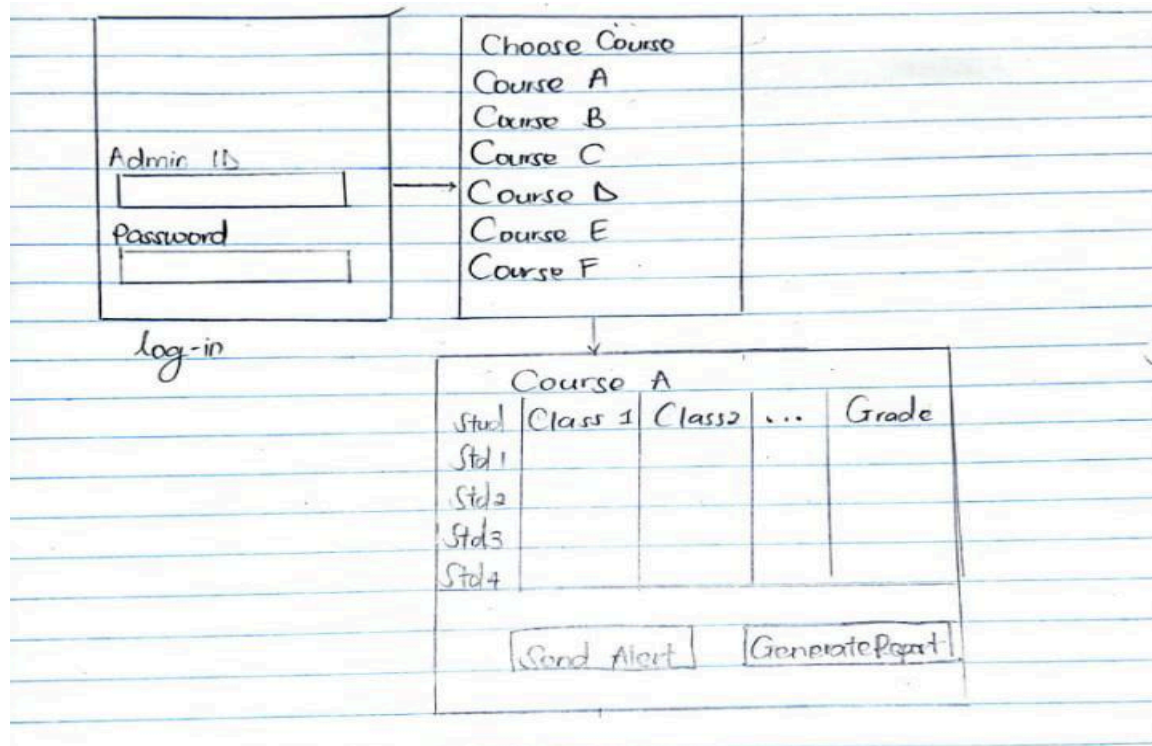 Admin ID
Password
log-in
Choose Course
Course A
Course B
Course C
Course D
Course E
Course F
Course A
Stud Class 1 Class2 ... Grade
Std 1
Std2
Std3
Std4
Send Alert GenerateReport